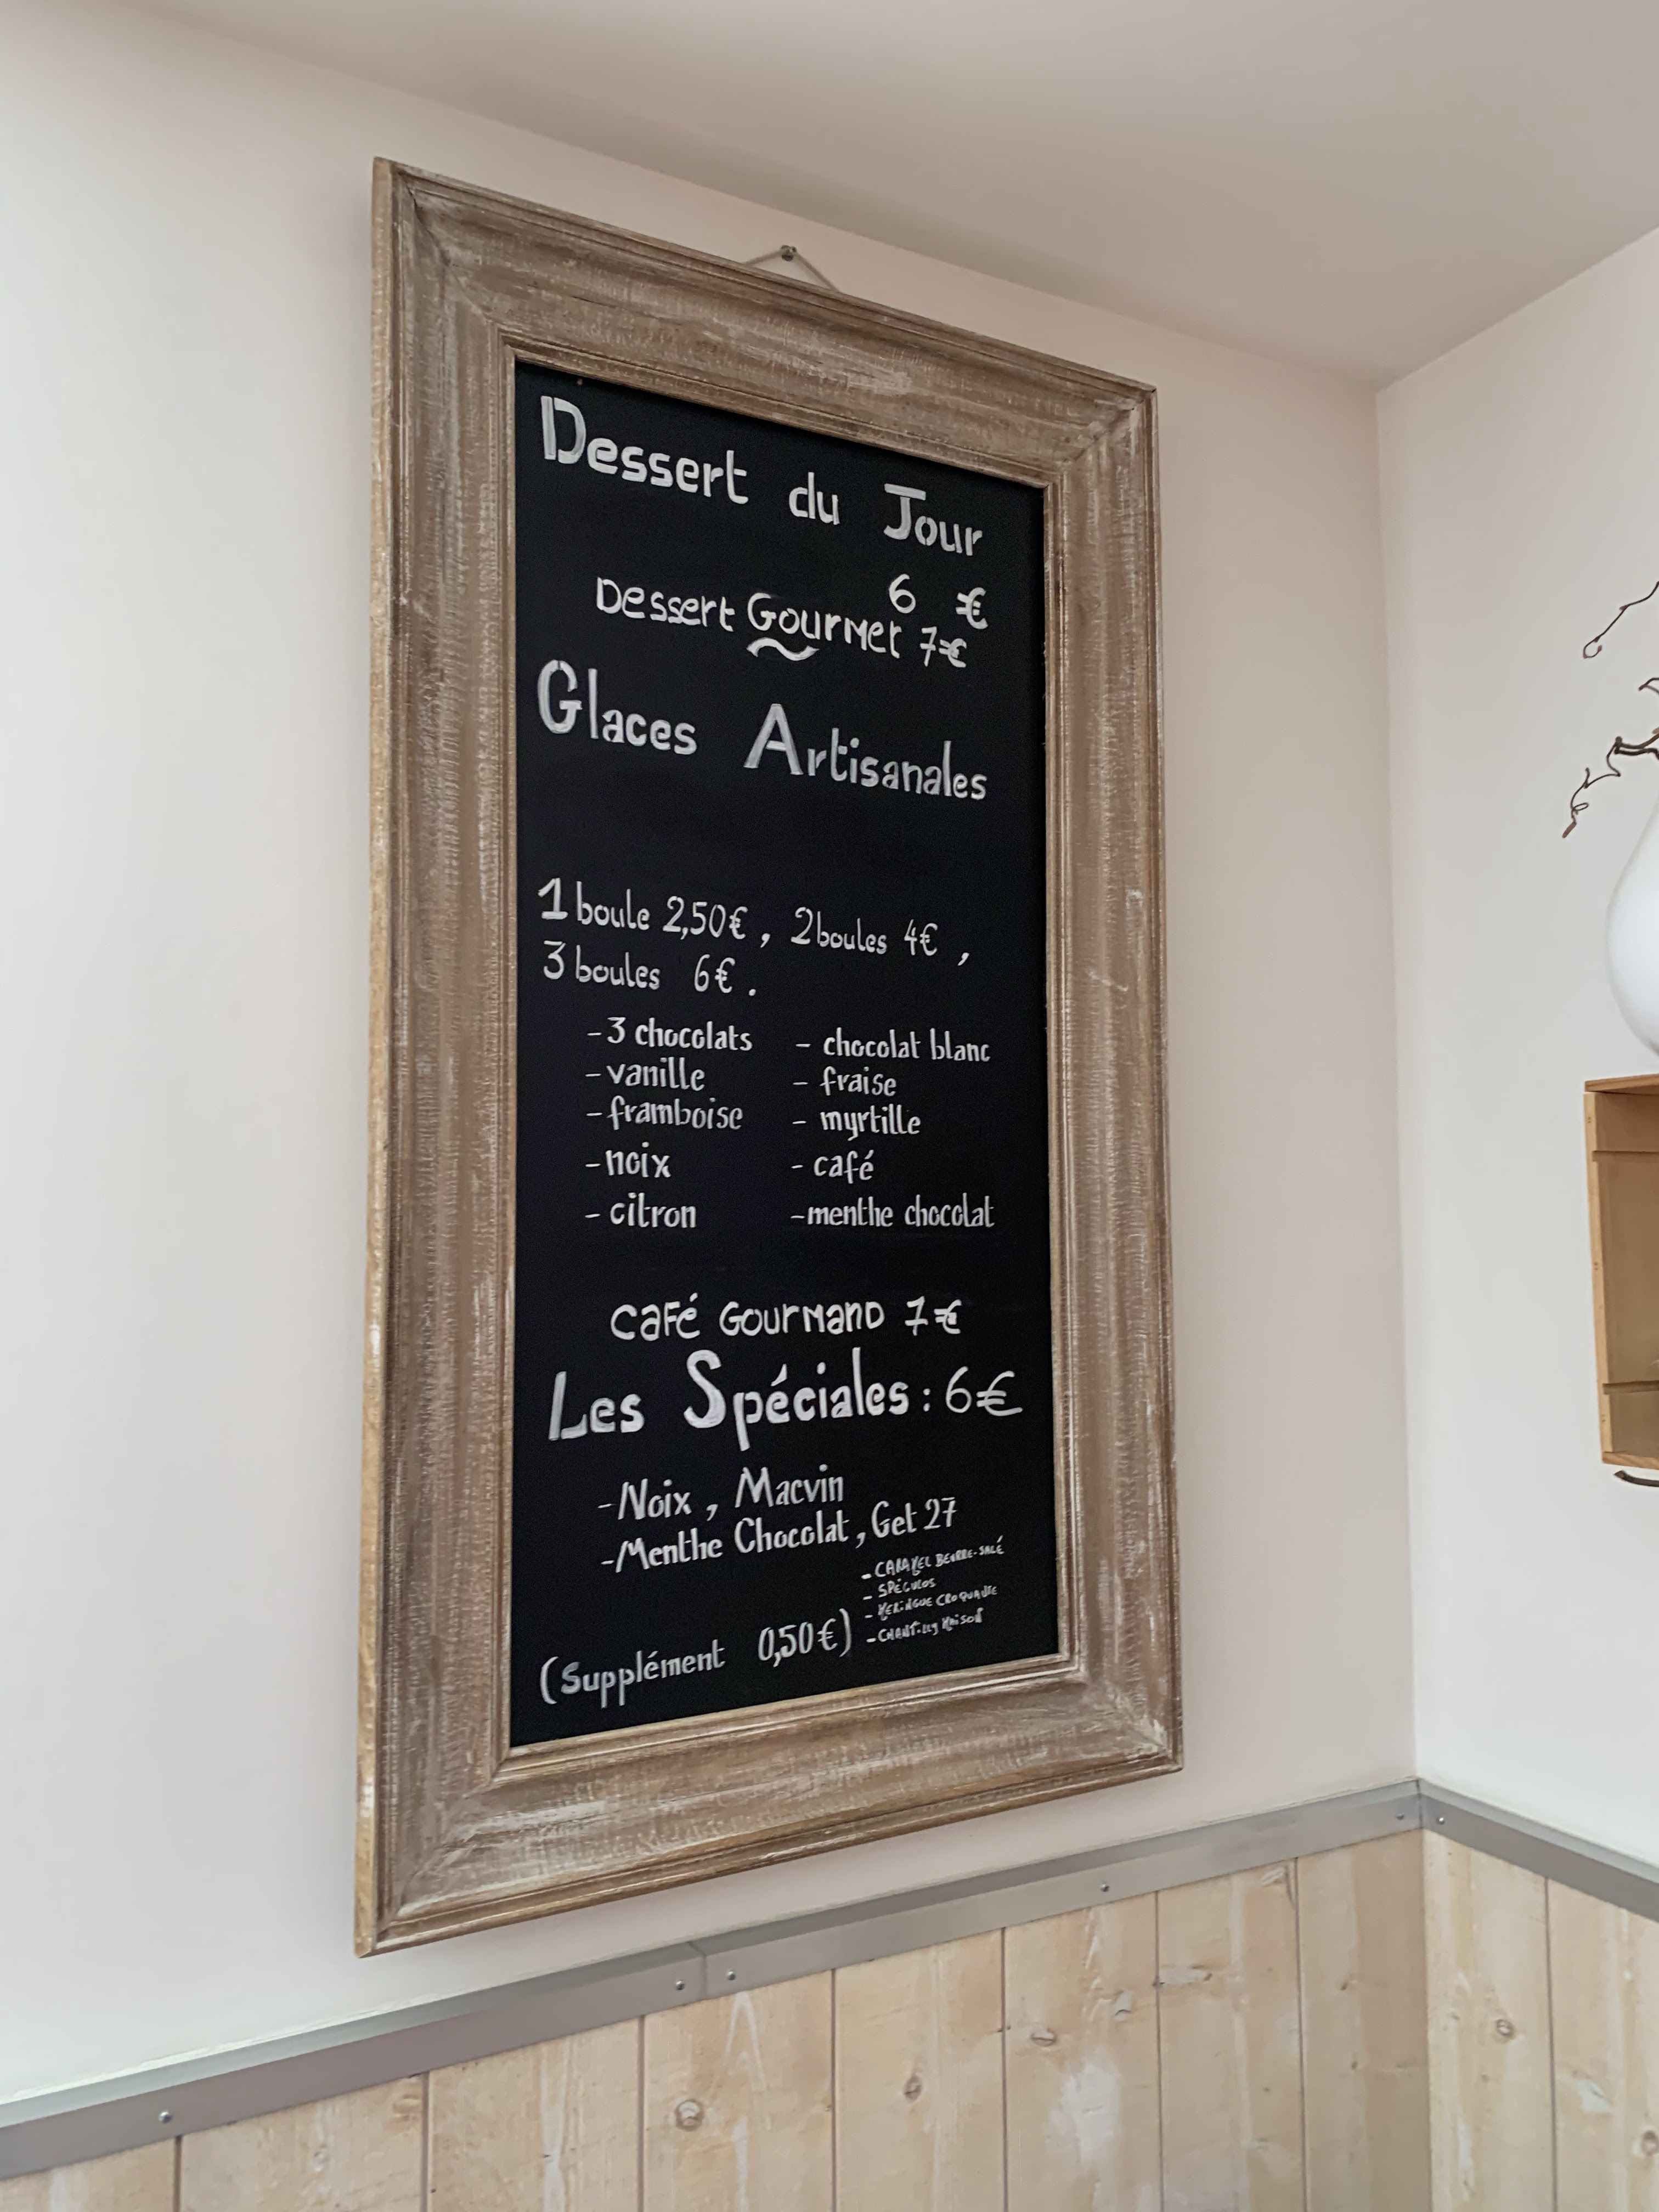 Dessert du Jour
6 €
Dessert Gourmet 7€
Glaces Artisanales
1 boule 2,50€, 2 boules 4€,
3 boules 6€.
- 3 chocolats
- vanille
- framboise
- noix
- citron
- chocolat blanc
- fraise
- myrtille
- café
- menthe chocolat
café Gourmand 7€
Les Spéciales : 6€
- Noix, Macvin
- Menthe Chocolat, Get 27
(Supplément 0,50€)
- CARAMEL BEURRE-SALÉ
- SPÉCULOS
- MERINGUE CROQUANTE
- CHANTILLY MAISON